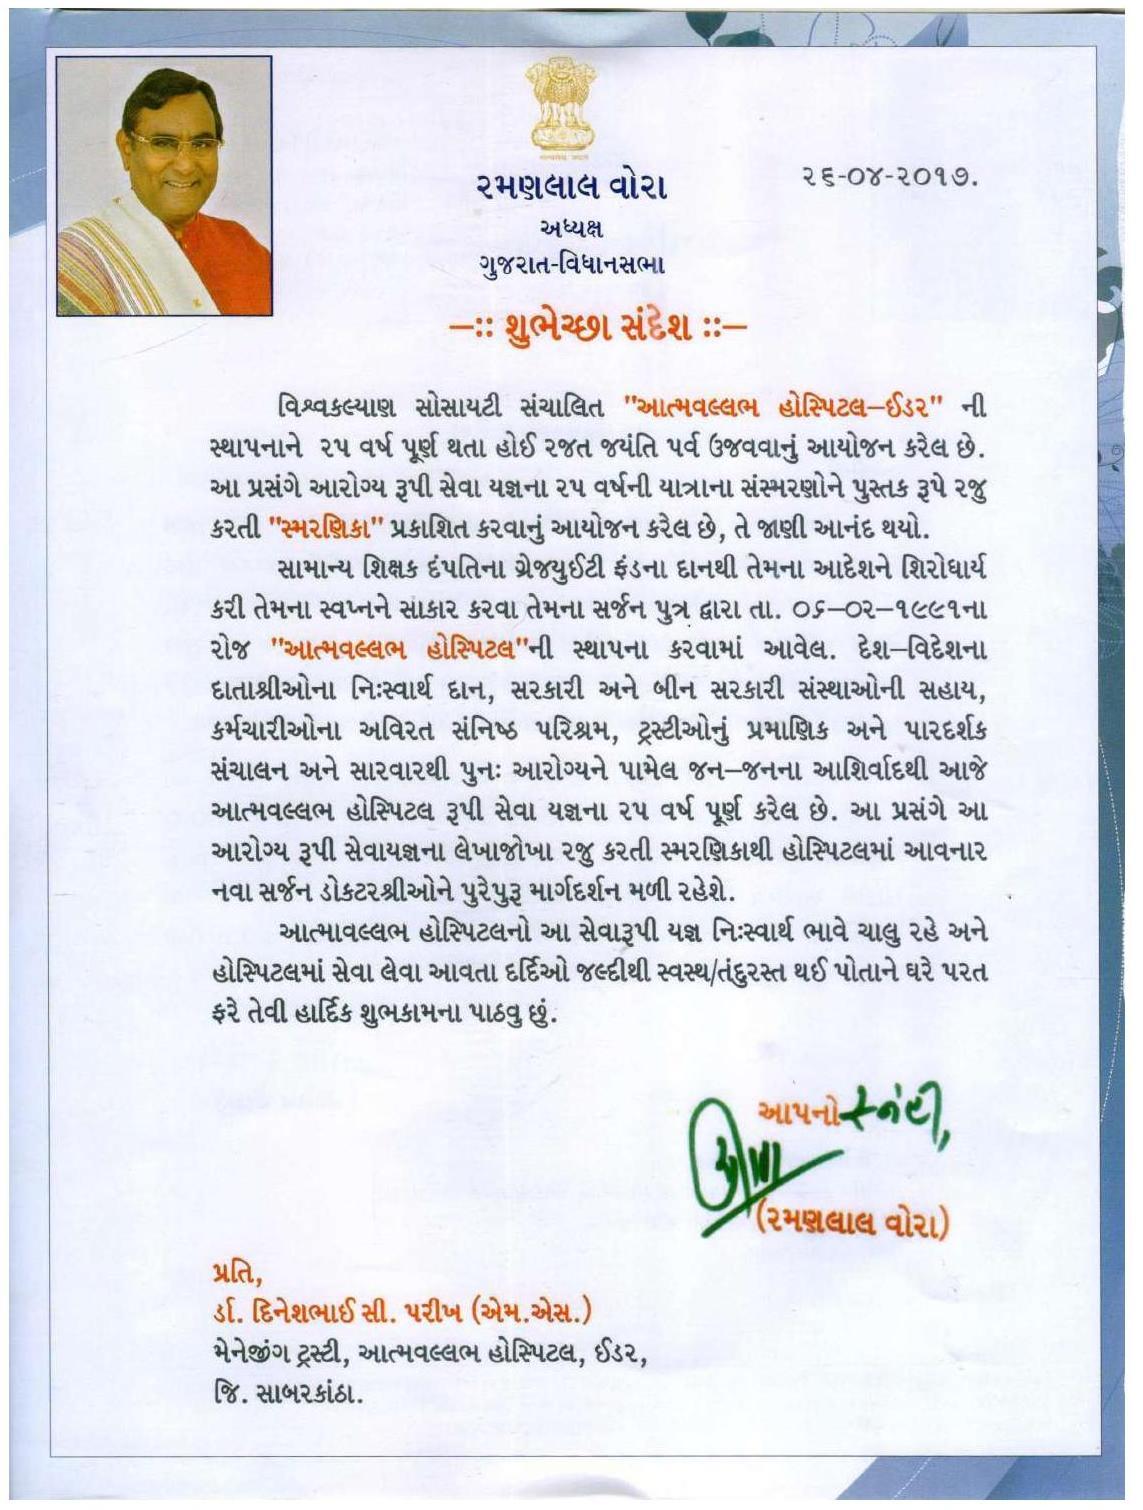 રમણલાલ વોરા
અધ્યક્ષ
ગુજરાત-વિધાનસભા
૨૬-૦૪-૨૦૧૭.
–:: શુભેચ્છા સંદેશ ::–
વિશ્વકલ્યાણ સોસાયટી સંચાલિત "આત્મવલ્લભ હોસ્પિટલ–ઈડર" ની
સ્થાપનાને ૨૫ વર્ષ પૂર્ણ થતા હોઈ રજત જયંતિ પર્વ ઉજવવાનું આયોજન કરેલ છે.
આ પ્રસંગે આરોગ્ય રૂપી સેવા યજ્ઞના ૨૫ વર્ષની યાત્રાના સંસ્મરણોને પુસ્તક રૂપે રજુ
કરતી "સ્મરણિકા" પ્રકાશિત કરવાનું આયોજન કરેલ છે, તે જાણી આનંદ થયો.
સામાન્ય શિક્ષક દંપતિના ગ્રેજયુઈટી ફંડના દાનથી તેમના આદેશને શિરોધાર્ય
કરી તેમના સ્વપ્નને સાકાર કરવા તેમના સર્જન પુત્ર દ્વારા તા. ૦૬–૦૨–૧૯૯૧ના
રોજ "આત્મવલ્લભ હોસ્પિટલ"ની સ્થાપના કરવામાં આવેલ. દેશ–વિદેશના
દાતાશ્રીઓના નિઃસ્વાર્થ દાન, સરકારી અને બીન સરકારી સંસ્થાઓની સહાય,
કર્મચારીઓના અવિરત સંનિષ્ઠ પરિશ્રમ, ટ્રસ્ટીઓનું પ્રમાણિક અને પારદર્શક
સંચાલન અને સારવારથી પુનઃ આરોગ્યને પામેલ જન–જનના આશિર્વાદથી આજે
આત્મવલ્લભ હોસ્પિટલ રૂપી સેવા યજ્ઞના ૨૫ વર્ષ પૂર્ણ કરેલ છે. આ પ્રસંગે આ
આરોગ્ય રૂપી સેવાયજ્ઞના લેખાજોખા રજુ કરતી સ્મરણિકાથી હોસ્પિટલમાં આવનાર
નવા સર્જન ડોકટરશ્રીઓને પુરેપુરૂ માર્ગદર્શન મળી રહેશે.
આત્માવલ્લભ હોસ્પિટલનો આ સેવારૂપી યજ્ઞ નિઃસ્વાર્થ ભાવે ચાલુ રહે અને
હોસ્પિટલમાં સેવા લેવા આવતા દર્દિઓ જલ્દીથી સ્વસ્થ/તંદુરસ્ત થઈ પોતાને ઘરે પરત
ફરે તેવી હાર્દિક શુભકામના પાઠવુ છું.
આપનો
(રમણલાલ વોરા)
પ્રતિ,
ર્ડા. દિનેશભાઈ સી. પરીખ (એમ.એસ.)
મેનેજીંગ ટ્રસ્ટી, આત્મવલ્લભ હોસ્પિટલ, ઈડર,
જિ. સાબરકાંઠા.